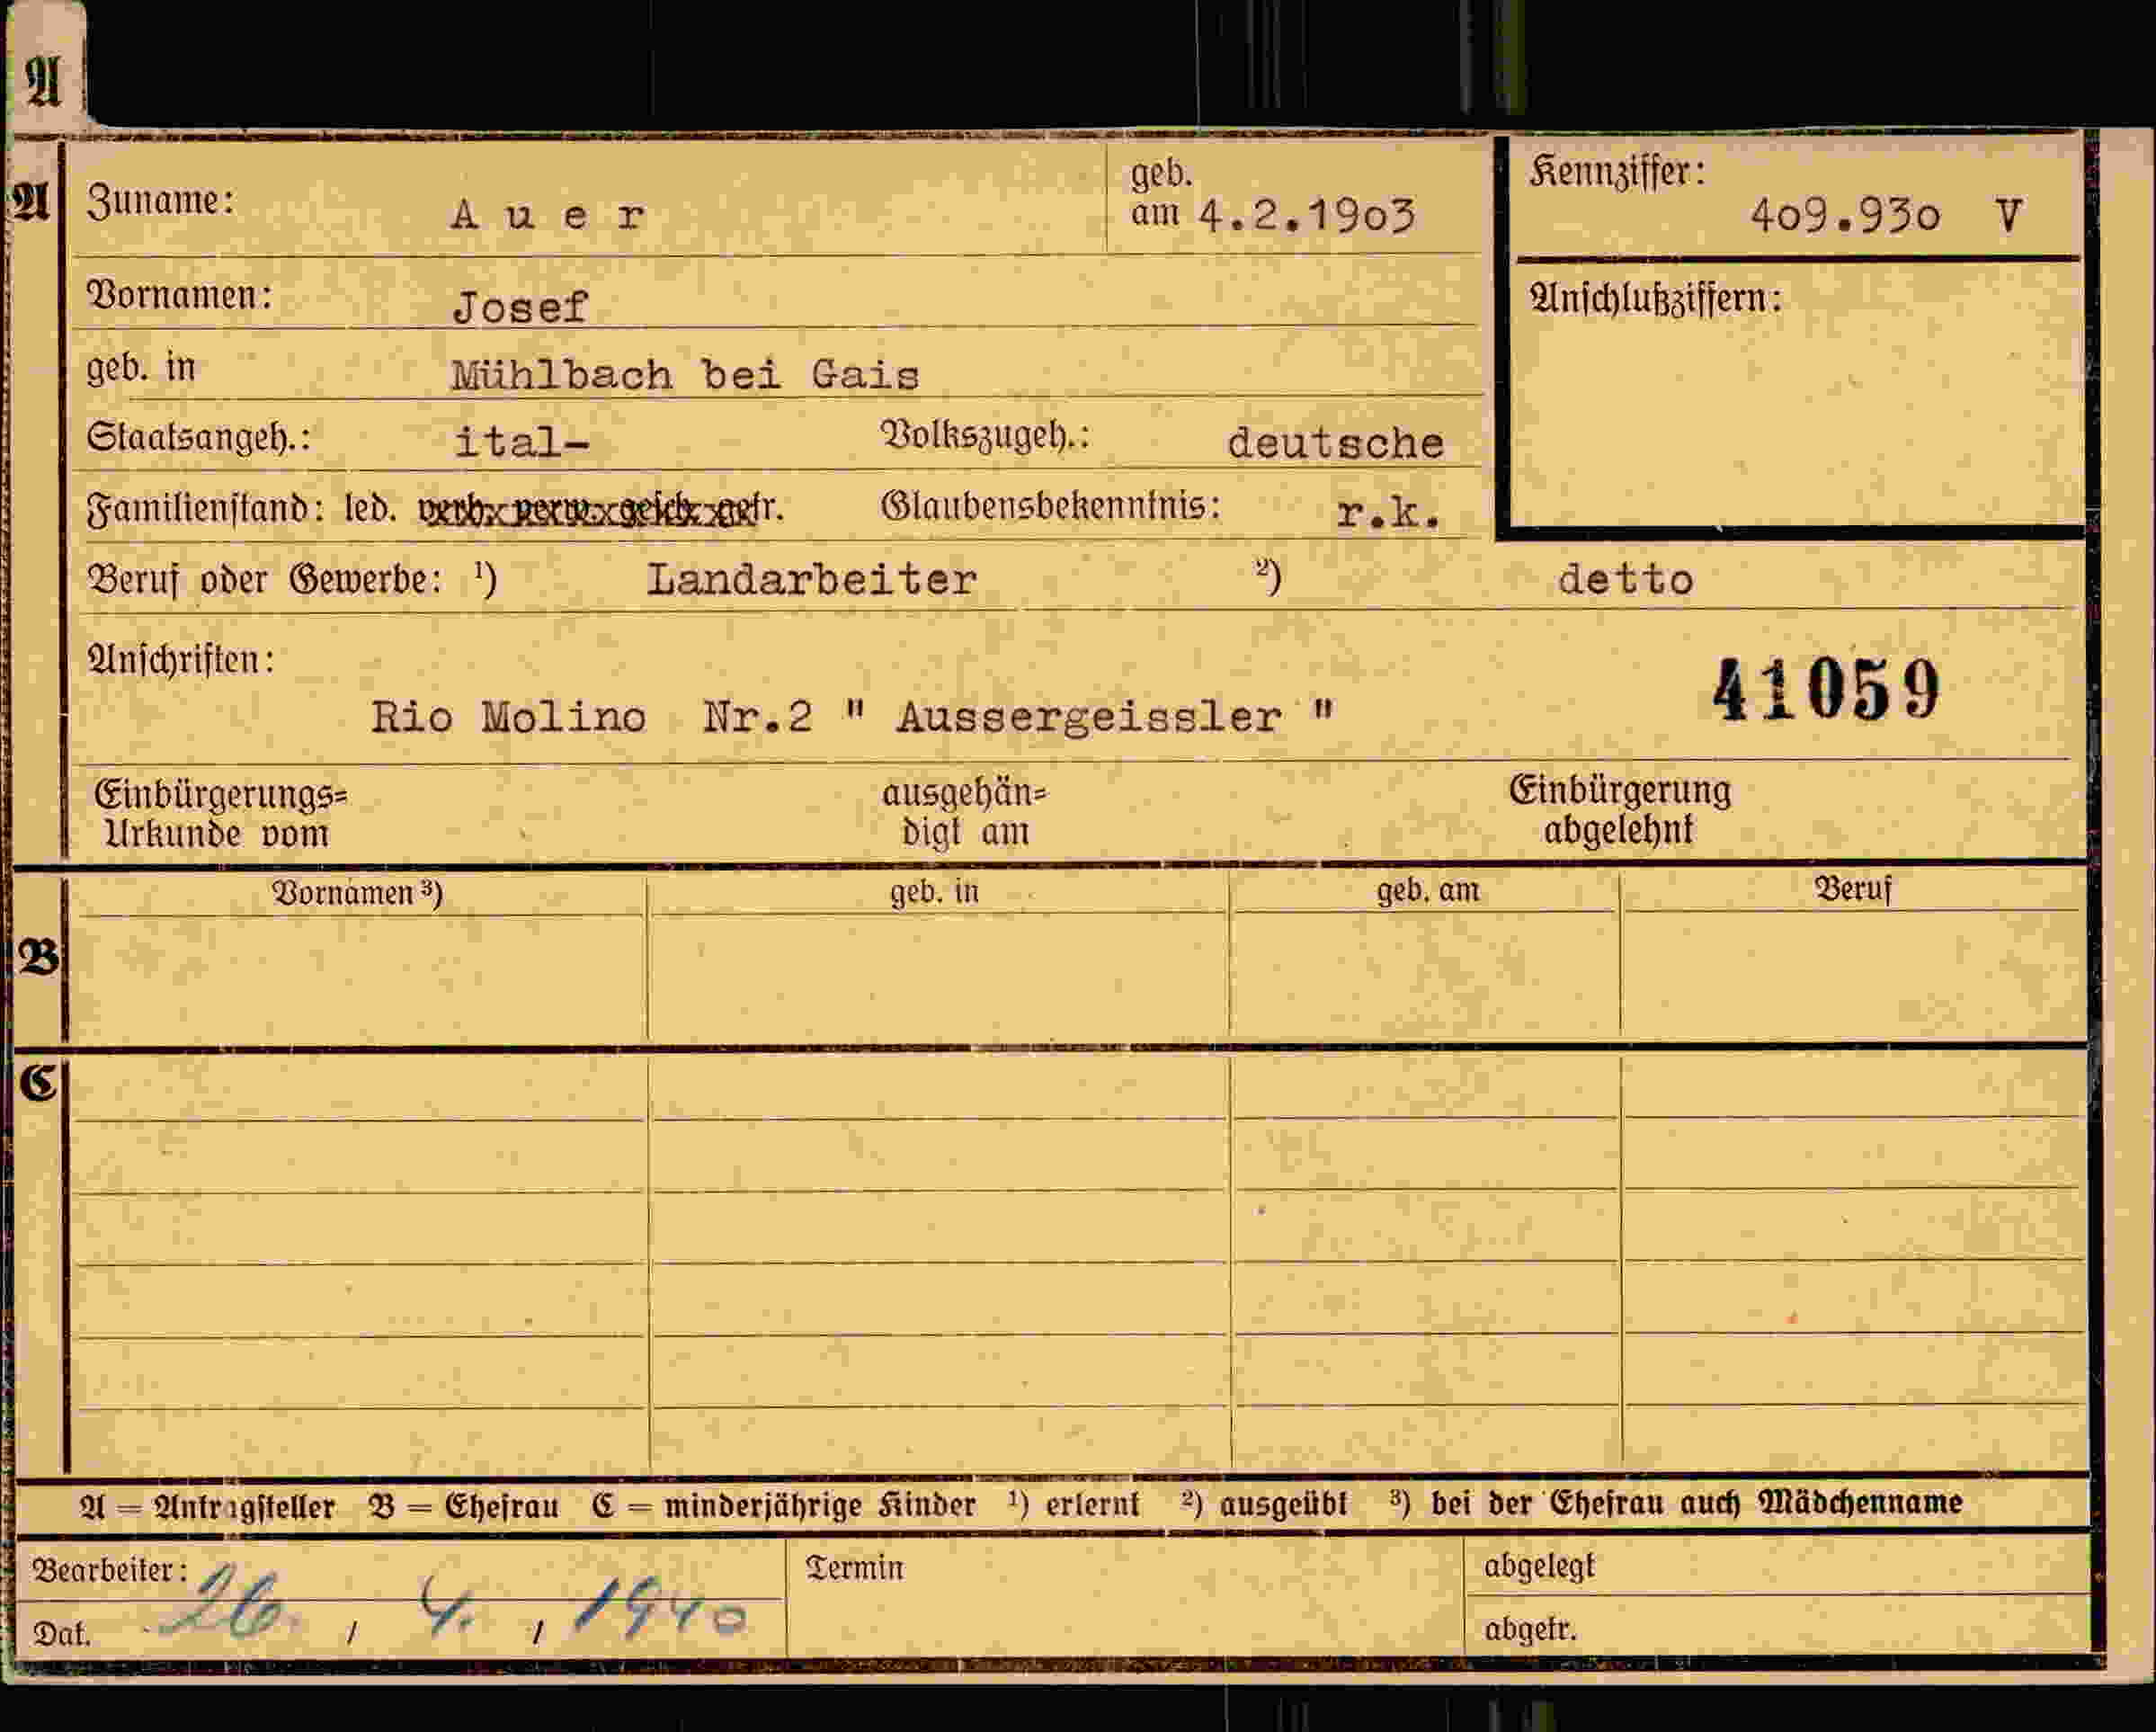 A
A
Zuname: Auer
geb.
am 4.2.1903
Kennziffer:
409.930 V
Vornamen: Josef
Anschlußziffern:
geb. in Mühlbach bei Gais
Staatsangeh.: ital- Volkszugeh.: deutsche
Familienstand: led. verh. verw. gesch. getr. Glaubensbekenntnis: r.k.
Beruf oder Gewerbe: ¹) Landarbeiter ²) detto
Anschriften:
41059
Rio Molino Nr.2 " Aussergeissler "
Einbürgerungs= ausgehän= Einbürgerung
Urkunde vom digt am abgelehnt
B
Vornamen ³) geb. in geb. am Beruf
C
A = Antragsteller B = Ehefrau C = minderjährige Kinder ¹) erlernt ²) ausgeübt ³) bei der Ehefrau auch Mädchenname
Bearbeiter: Termin abgelegt
Dat. 26. / 4. / 1940 abgetr.